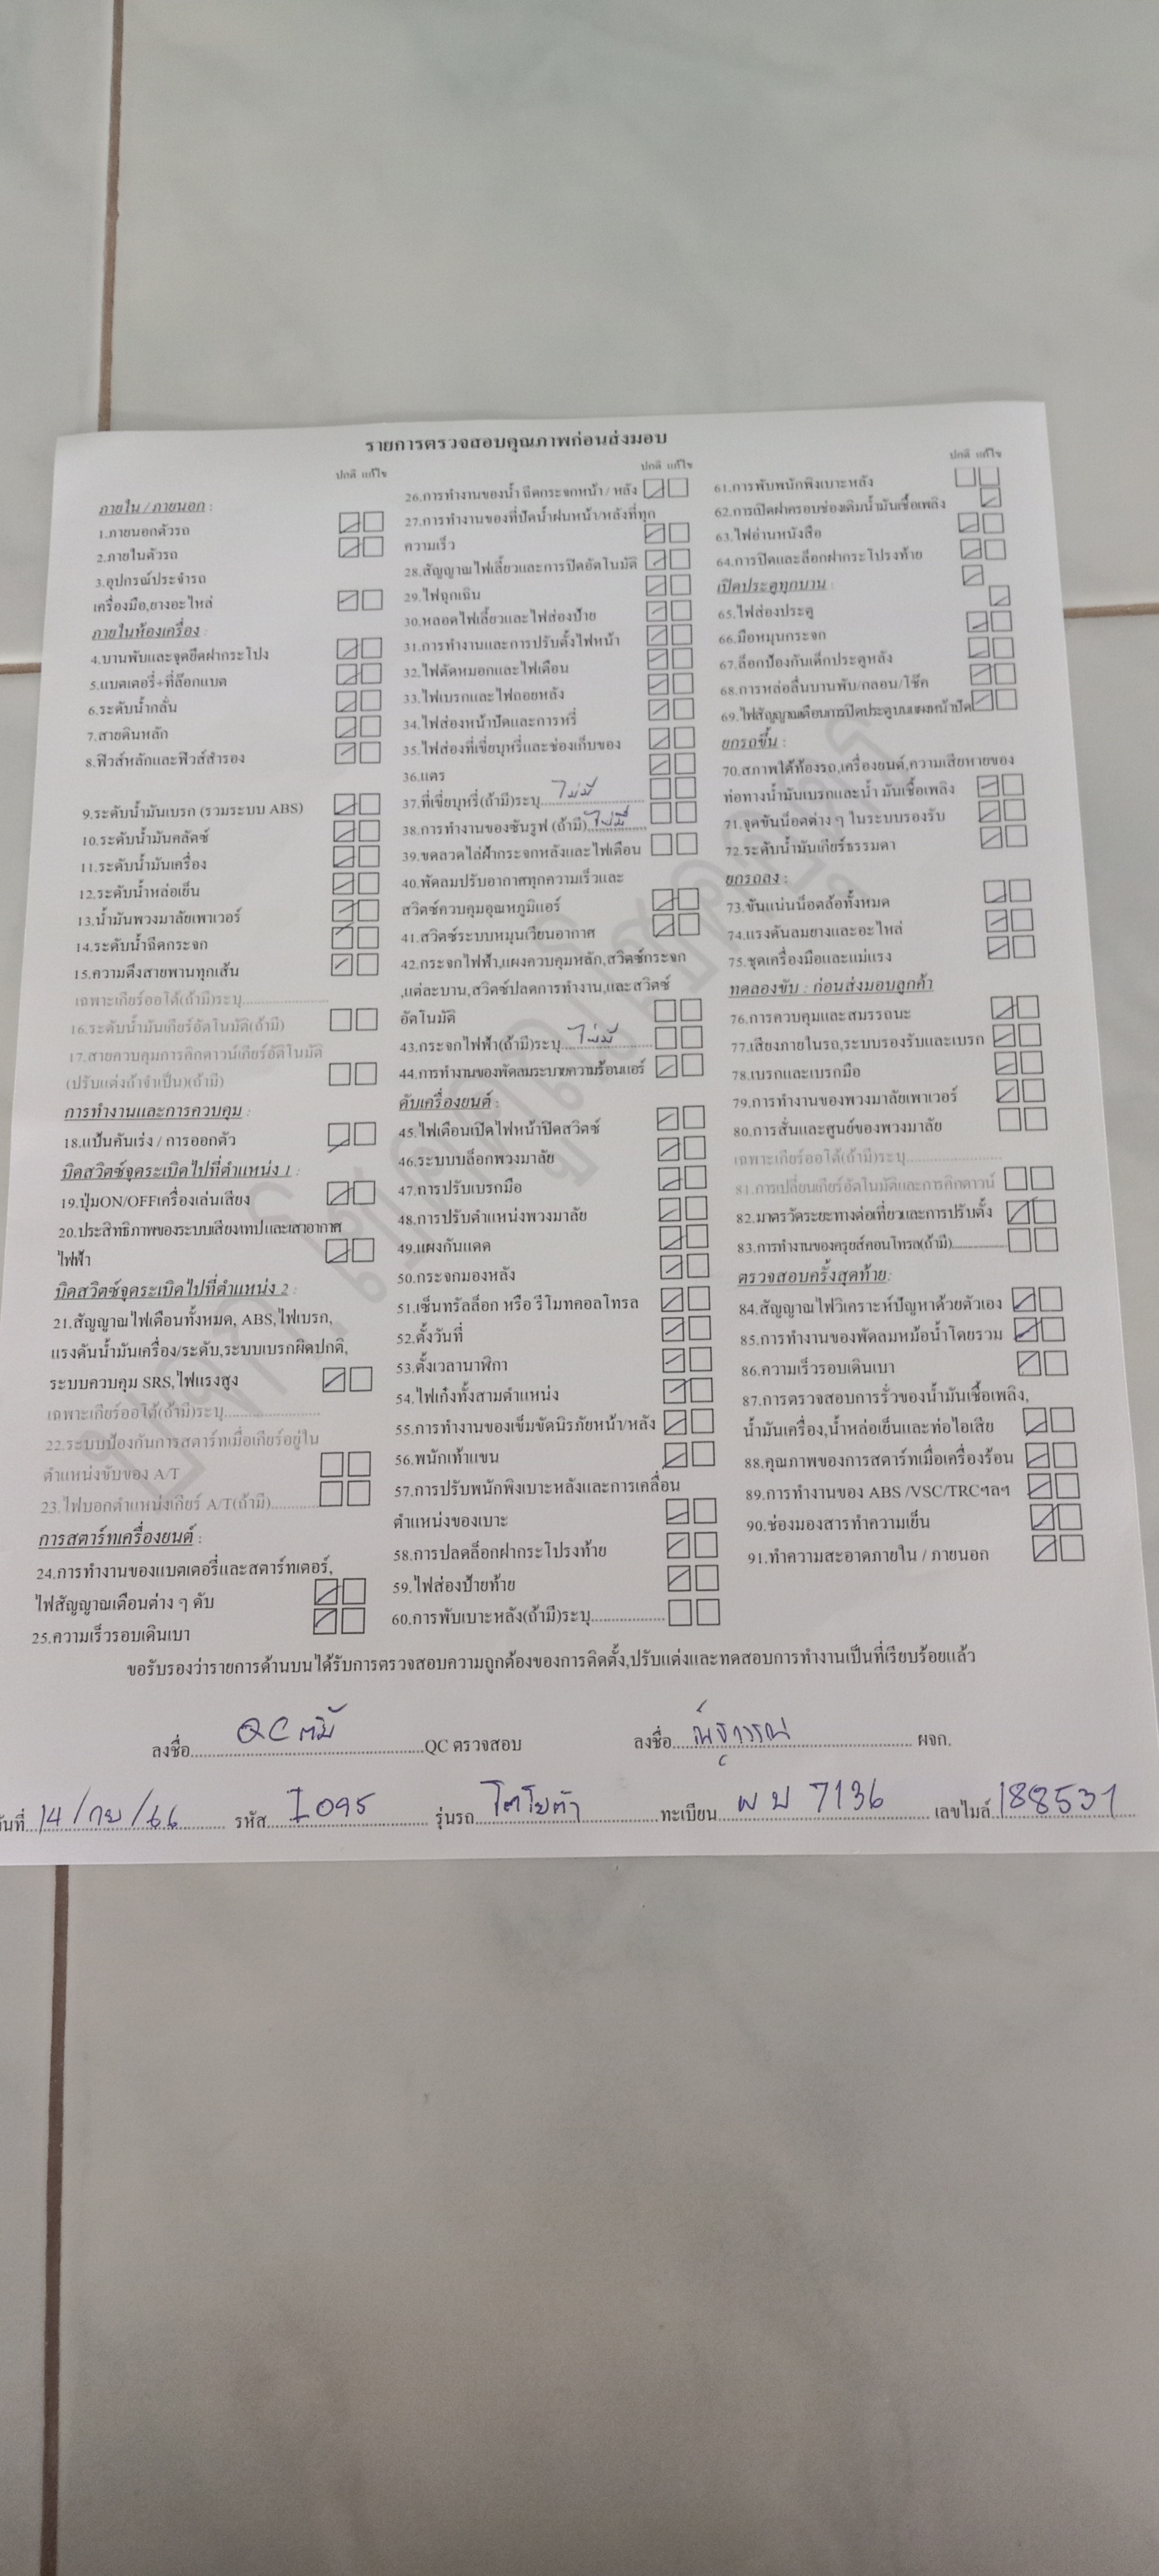 รายการตรวจสอบคุณภาพก่อนส่งมอบ
ปกติ แก้ไข
ภายใน / ภายนอก :
1.ภายนอกตัวรถ
2.ภายในตัวรถ
3.อุปกรณ์ประจำรถ
เครื่องมือ,ยางอะไหล่
ภายในห้องเครื่อง :
4.บานพับและจุดยึดฝากระโปง
5.แบตเตอรี่+ที่ล็อกแบต
6.ระดับน้ำกลั่น
7.สายดินหลัก
8.ฟิวส์หลักและฟิวส์สำรอง
9.ระดับน้ำมันเบรก (รวมระบบ ABS)
10.ระดับน้ำมันคลัตซ์
11.ระดับน้ำมันเครื่อง
12.ระดับน้ำหล่อเย็น
13.น้ำมันพวงมาลัยเพาเวอร์
14.ระดับน้ำฉีดกระจก
15.ความตึงสายพานทุกเส้น
เฉพาะเกียร์ออโต้(ถ้ามี)ระบุ....................
16.ระดับน้ำมันเกียร์อัตโนมัติ(ถ้ามี)
17.สายควบคุมการคิกดาวน์เกียร์อัติโนมัติ
(ปรับแต่งถ้าจำเป็น)(ถ้ามี)
การทำงานและการควบคุม :
18.แป้นคันเร่ง / การออกตัว
บิดสวิตซ์จุดระเบิดไปที่ตำแหน่ง 1 :
19.ปุ่มON/OFFเครื่องเล่นเสียง
20.ประสิทธิภาพของระบบเสียงเทปและเสาอากาศ
ไฟฟ้า
บิดสวิตซ์จุดระเบิดไปที่ตำแหน่ง 2 :
21.สัญญาณไฟเตือนทั้งหมด, ABS,ไฟเบรก,
แรงดันน้ำมันเครื่อง/ระดับ,ระบบเบรกผิดปกติ,
ระบบควบคุม SRS,ไฟแรงสูง
เฉพาะเกียร์ออโต้(ถ้ามี)ระบุ....................
22.ระบบป้องกันการสตาร์ทเมื่อเกียร์อยู่ใน
ตำแหน่งขับของ A/T
23.ไฟบอกตำแหน่งเกียร์ A/T(ถ้ามี)..........
การสตาร์ทเครื่องยนต์ :
24.การทำงานของแบตเตอรี่และสตาร์ทเตอร์,
ไฟสัญญาณเตือนต่าง ๆ ดับ
25.ความเร็วรอบเดินเบา
ปกติ แก้ไข
26.การทำงานของน้ำ ฉีดกระจกหน้า / หลัง
27.การทำงานของที่ปัดน้ำฝนหน้า/หลังที่ทุก
ความเร็ว
28.สัญญาณไฟเลี้ยวและการปิดอัตโนมัติ
29.ไฟฉุกเฉิน
30.หลอดไฟเลี้ยวและไฟส่องป้าย
31.การทำงานและการปรับตั้งไฟหน้า
32.ไฟตัดหมอกและไฟเตือน
33.ไฟเบรกและไฟถอยหลัง
34.ไฟส่องหน้าปัดและการหรี่
35.ไฟส่องที่เขี่ยบุหรี่และช่องเก็บของ
36.แตร
37.ที่เขี่ยบุหรี่(ถ้ามี)ระบุ.....ไม่มี.....
38.การทำงานของซันรูฟ (ถ้ามี)...ไม่มี...
39.ขดลวดไล่ฝ้ากระจกหลังและไฟเตือน
40.พัดลมปรับอากาศทุกความเร็วและ
สวิตซ์ควบคุมอุณหภูมิแอร์
41.สวิตซ์ระบบหมุนเวียนอากาศ
42.กระจกไฟฟ้า,แผงควบคุมหลัก,สวิตซ์กระจก
,แต่ละบาน,สวิตซ์ปลดการทำงาน,และสวิตซ์
อัตโนมัติ
43.กระจกไฟฟ้า(ถ้ามี)ระบุ.....ไม่มี.....
44.การทำงานของพัดลมระบายความร้อนแอร์
ดับเครื่องยนต์ :
45.ไฟเตือนเปิดไฟหน้าปิดสวิตซ์
46.ระบบบล็อกพวงมาลัย
47.การปรับเบรกมือ
48.การปรับตำแหน่งพวงมาลัย
49.แผงกันแดด
50.กระจกมองหลัง
51.เซ็นทรัลล็อก หรือ รีโมทคอลโทรล
52.ตั้งวันที่
53.ตั้งเวลานาฬิกา
54.ไฟเก๋งทั้งสามตำแหน่ง
55.การทำงานของเข็มขัดนิรภัยหน้า/หลัง
56.พนักเท้าแขน
57.การปรับพนักพิงเบาะหลังและการเคลื่อน
ตำแหน่งของเบาะ
58.การปลดล็อกฝากระโปรงท้าย
59.ไฟส่องป้ายท้าย
60.การพับเบาะหลัง(ถ้ามี)ระบุ.................
ปกติ แก้ไข
61.การพับพนักพิงเบาะหลัง
62.การเปิดฝาครอบช่องเติมน้ำมันเชื้อเพลิง
63.ไฟอ่านหนังสือ
64.การปิดและล็อกฝากระโปรงท้าย
เปิดประตูทุกบาน :
65.ไฟส่องประตู
66.มือหมุนกระจก
67.ล็อกป้องกันเด็กประตูหลัง
68.การหล่อลื่นบานพับ/กลอน/โช๊ค
69.ไฟสัญญาณเตือนการปิดประตูบนแผงหน้าปัด
ยกรถขึ้น :
70.สภาพใต้ท้องรถ,เครื่องยนต์,ความเสียหายของ
ท่อทางน้ำมันเบรกและน้ำ มันเชื้อเพลิง
71.จุดขันน็อตต่าง ๆ ในระบบรองรับ
72.ระดับน้ำมันเกียร์ธรรมดา
ยกรถลง :
73.ขันแน่นน็อตล้อทั้งหมด
74.แรงดันลมยางและอะไหล่
75.ชุดเครื่องมือและแม่แรง
ทดลองขับ : ก่อนส่งมอบลูกค้า
76.การควบคุมและสมรรถนะ
77.เสียงภายในรถ,ระบบรองรับและเบรก
78.เบรกและเบรกมือ
79.การทำงานของพวงมาลัยเพาเวอร์
80.การสั่นและศูนย์ของพวงมาลัย
เฉพาะเกียร์ออโต้(ถ้ามี)ระบุ....................
81.การเปลี่ยนเกียร์อัตโนมัติและการคิกดาวน์
82.มาตรวัดระยะทางต่อเที่ยวและการปรับตั้ง
83.การทำงานของครุยส์คอนโทรล(ถ้ามี)...........
ตรวจสอบครั้งสุดท้าย:
84.สัญญาณไฟวิเคราะห์ปัญหาด้วยตัวเอง
85.การทำงานของพัดลมหม้อน้ำโดยรวม
86.ความเร็วรอบเดินเบา
87.การตรวจสอบการรั่วของน้ำมันเชื้อเพลิง,
น้ำมันเครื่อง,น้ำหล่อเย็นและท่อไอเสีย
88.คุณภาพของการสตาร์ทเมื่อเครื่องร้อน
89.การทำงานของ ABS /VSC/TRCฯลฯ
90.ช่องมองสารทำความเย็น
91.ทำความสะอาดภายใน / ภายนอก
ขอรับรองว่ารายการด้านบนได้รับการตรวจสอบความถูกต้องของการติดตั้ง,ปรับแต่งและทดสอบการทำงานเป็นที่เรียบร้อยแล้ว
ลงชื่อ......QC......QC ตรวจสอบ ลงชื่อ............ ผจก.
วันที่ 14/กย/66 รหัส I 095 รุ่นรถ โตโยต้า ทะเบียน ผ บ 7136 เลขไมล์ 188531